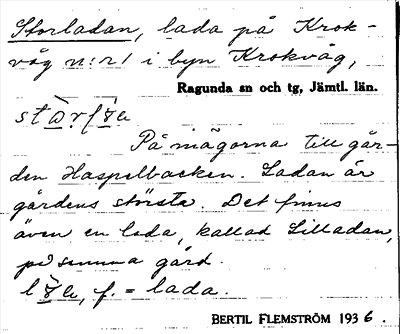 Storladan, lada på Krok-
våg n:r 1 i byn Krokvåg,
Ragunda sn och tg, Jämtl. län.
På mägorna till går-
den Haspelbacken. Ladan är
gårdens största. Det finns
även en lada, kallad Lilladan,
på samma gård.
f. = lada.
BERTIL FLEMSTRÖM 1936.